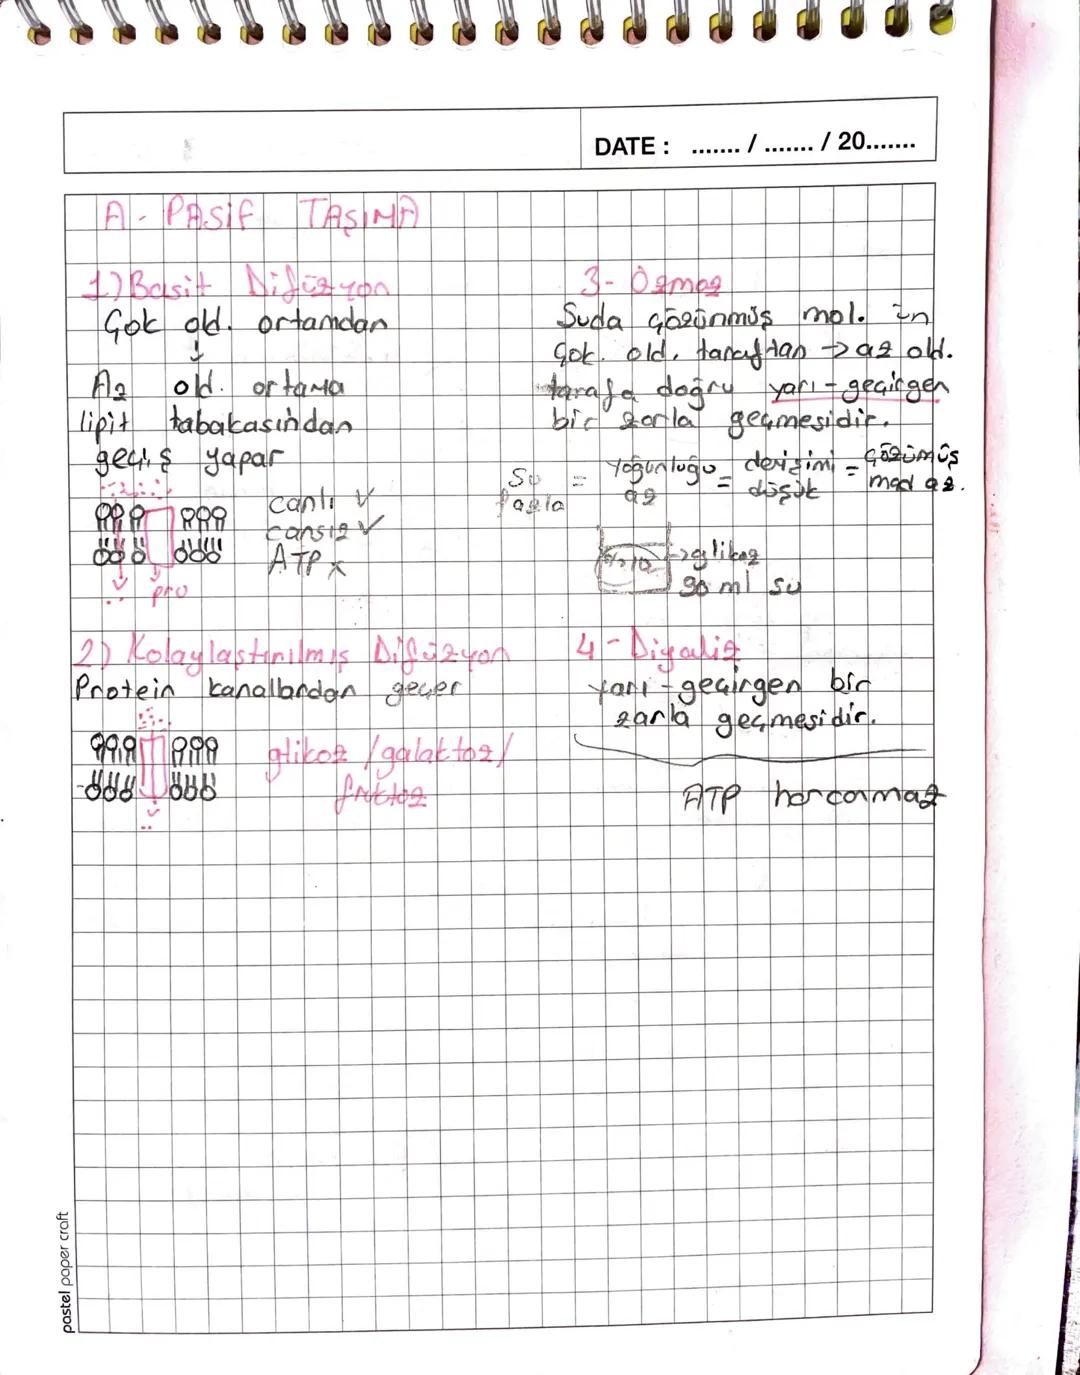 DATE : ....... / ....... / 20.......
A - PASİF TAŞIMA
1) Basit Difüzyon
Çok old. ortamdan
↓
Az old. ortama
lipit tabakasından
geçiş yapar
canlı ✓
cansız ✓
ATP x
pro
2) Kolaylaştırılmış Difüzyon
Protein kanallardan geçer
glikoz / galaktoz /
früktoz
3- Ozmoz
Suda çözünmüş mol. ün
Çok. old. taraftan → az old.
tarafa doğru yarı - geçirgen
bir zarla geçmesidir.
Su fazla = yoğunluğu az = derişimi düşük = çözümüş mad az.
%10 → glikoz
90 ml su
4 - Diyaliz
yarı - geçirgen bir
zarla geçmesidir.
ATP harcanmaz
pastel paper craft